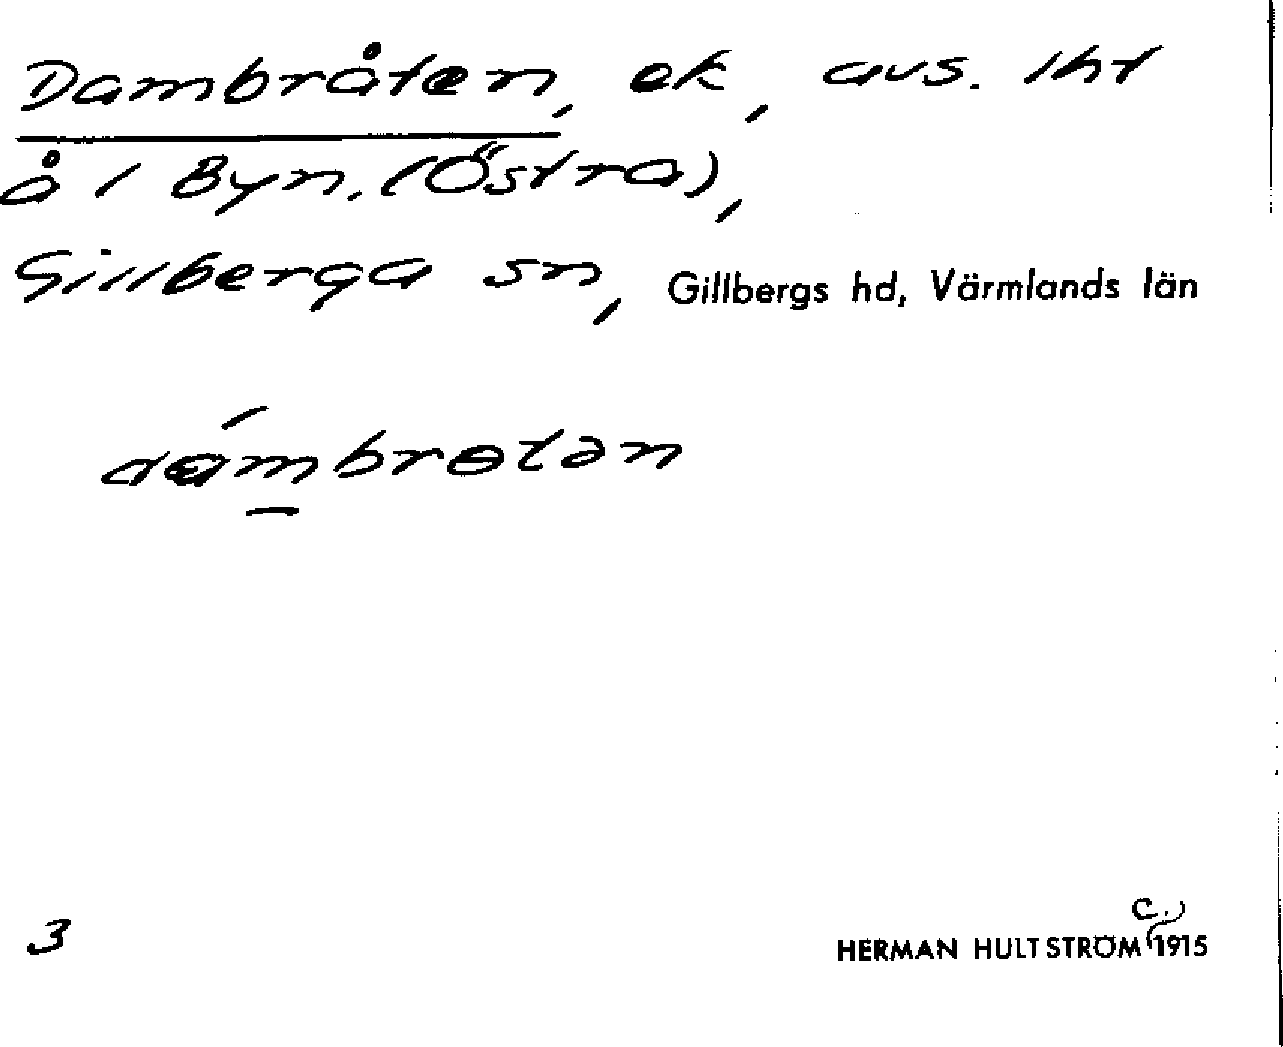 Dambråten, ek, avs. lht
å 1 Byn. (Östra),
Gillberga sn, Gillbergs hd, Värmlands län
dámbrɵtən
3
HERMAN HULTSTRÖM c. 1915